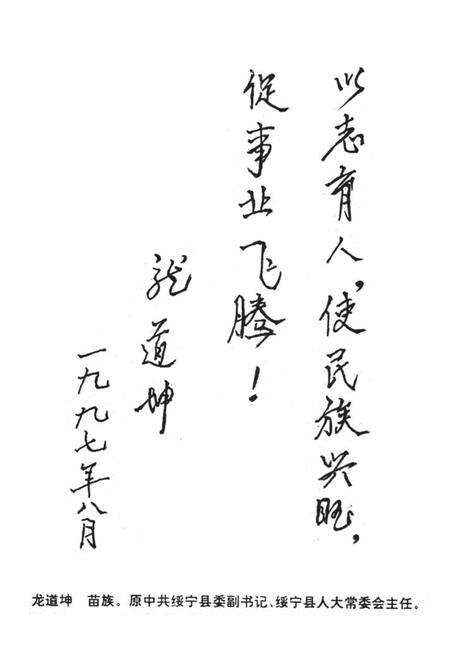 以志育人,使民族兴旺,
促事业飞腾!
龙道坤
一九九七年八月
龙道坤 苗族。原中共绥宁县委副书记、绥宁县人大常委会主任。